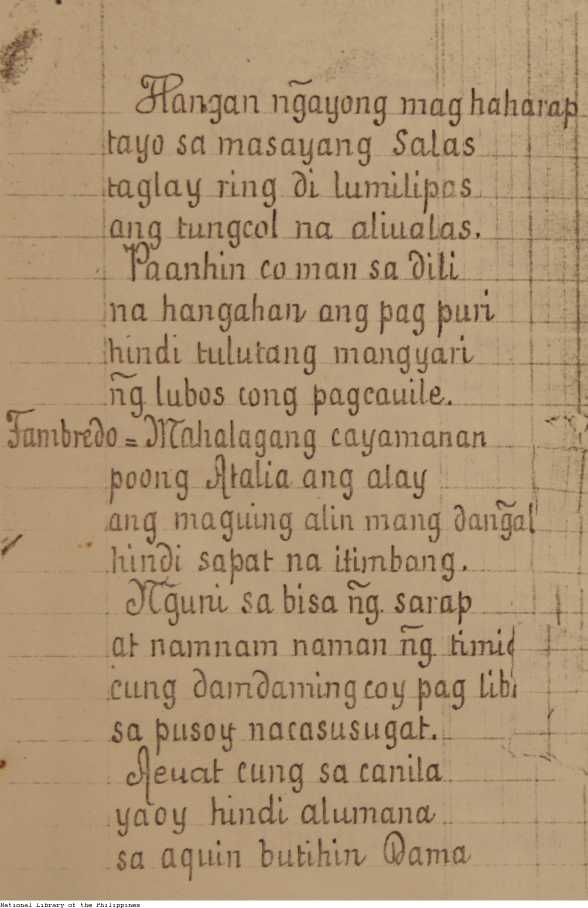 Hangan ng̃ayong mag haharap
tayo sa masayang Salas
taglay ring di lumilipas
ang tungcol na aliualas.
Paanhin co man sa dili
na hangahan ang pag puri
hindi tulutang mangyari
ñg lubos cong pagcauile.
Tambredo = Mahalagang cayamanan
poong Atalia ang alay
ang maguing alin mang dang̃al
hindi sapat na itimbang.
Ng̃uni sa bisa ñg sarap
at namnam naman ñg
cung damdaming coy pag
sa pusoy nacasusugat.
Aeuat cung sa canila
yaoy hindi alumana
sa aquin butihin Dama
National Library of the Philippines